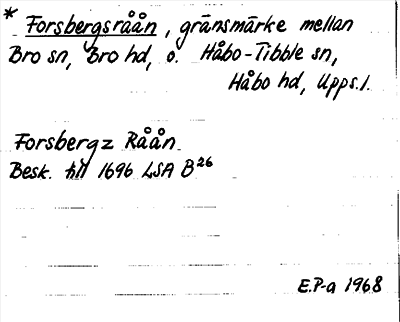 * Forsbergsråån, gränsmärke mellan
Bro sn, Bro hd, o. Håbo-Tibble sn,
Håbo hd, Upps.l.
Forsbergz Råån
Besk. till 1696 LSA B26
E.P-a 1968